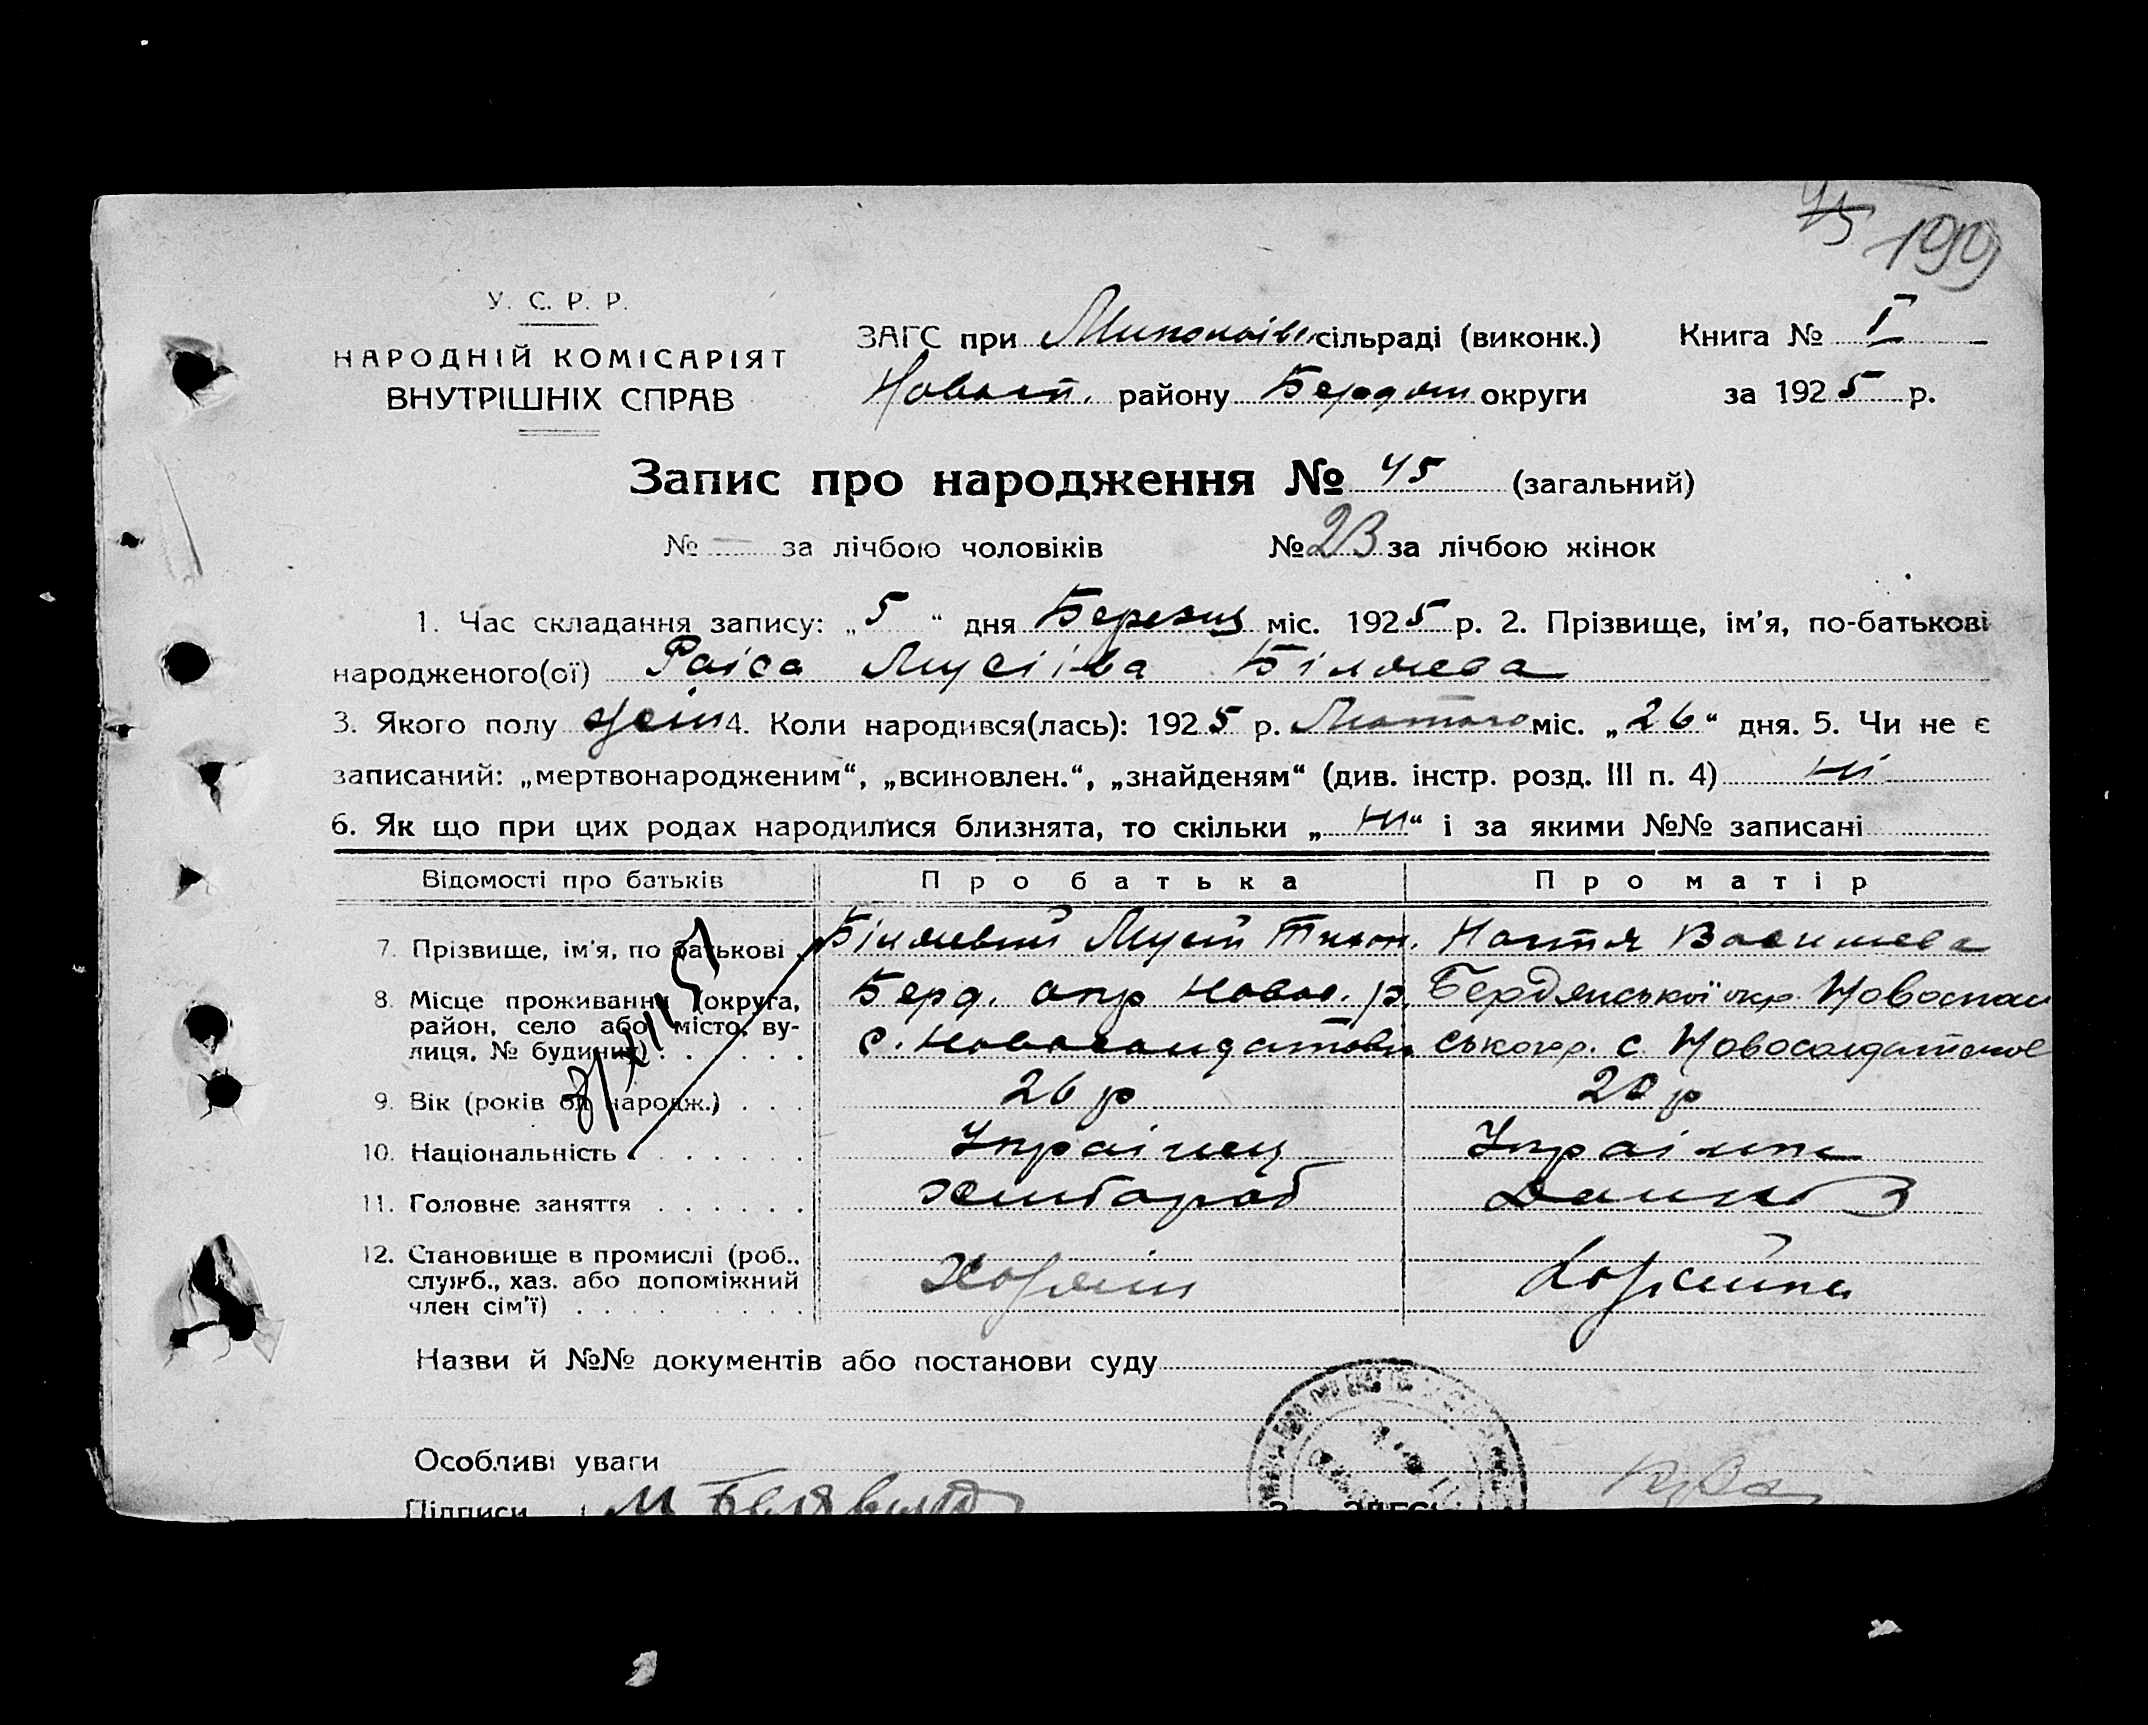 45 199
У. С. Р. Р.
НАРОДНІЙ КОМІСАРІЯТ
ВНУТРІШНІХ СПРАВ
ЗАГС при Миколаїв. сільраді (виконк.) Книга № I
Новосп. району Бердян округи за 1925 р.
Запис про народження № 45 (загальний)
№ — за лічбою чоловіків № 23 за лічбою жінок
1. Час складання запису: „5“ дня Березня міс. 1925 р. 2. Прізвище, ім'я, по-батькові
народженого(ої) Раіса Мусііва Біляева
3. Якого полу жін 4. Коли народився(лась): 1925 р. Лютого міс. „26“ дня. 5. Чи не є
записаний: „мертвонародженим“, „всиновлен.“, „знайденям“ (див. інстр. розд. III п. 4) ні
6. Як що при цих родах народилися близнята, то скільки „ні“ і за якими №№ записані
Відомості про батьків Про батька Про матір
7. Прізвище, ім'я, по батькові . Біляевий Мусій Тихон. Настя Василева
8. Місце проживання (округа, Берд. окр Новос. р. Бердянської окр. Новоспас
район, село або місто, ву- с. Новосолдатовк ського р. с Новосолдатское
лиця, № будинку) . . . . .
9. Вік (років од народж.) . . . 26 р 20 р
10. Національність . . . . . . Украінец Украінка
11. Головне заняття . . . . . . хлібороб
12. Становище в промислі (роб., Хозяїн Хозяйка
служб., хаз. або допоміжний
член сім'ї) . . . . . . . . .
Назви й №№ документів або постанови суду
Особливі уваги
Підписи М Белявский